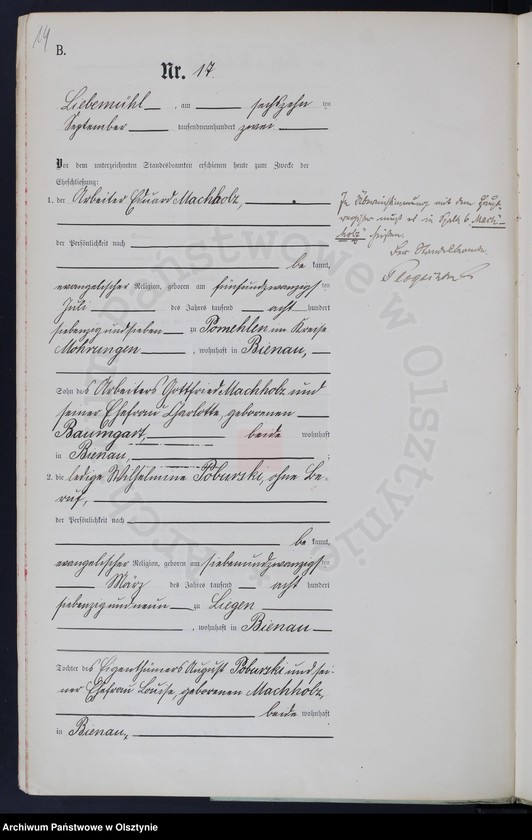 14
B.
Nr. 17.
Liebemühl, am sechszehnten
September tausendneunhundert zwei
Vor dem unterzeichneten Standesbeamten erschienen heute zum Zwecke der
Eheschließung:
1. der Arbeiter Eduard Machholz,
der Persönlichkeit nach
be kannt,
evangelischer Religion, geboren am fünfundzwanzigsten
Juli des Jahres tausend acht hundert
siebenzigundsieben zu Pomehlen im Kreise
Mohrungen, wohnhaft in Bienau,
Sohn des Arbeiters Gottfried Machholz und
seiner Ehefrau Charlotte, geborenen
Baumgart, beide wohnhaft
in Bienau,
2. die ledige Wilhelmine Poburski, ohne Be-
ruf,
der Persönlichkeit nach
be kannt,
evangelischer Religion, geboren am siebenundzwanzigsten
März des Jahres tausend acht hundert
siebenzigundneun zu Liegen
, wohnhaft in Bienau
Tochter des Eigenthümers August Poburski und sei-
ner Ehefrau Louise, geborenen Machholz,
beide wohnhaft
in Bienau,
In Übereinstimmung mit dem Haupt-
register muß es in Spalte 6 "Mach-
holz" heißen.
Der Standesbeamte.
Archiwum Państwowe w Olsztynie
Archiwum Państwowe w Olsztynie